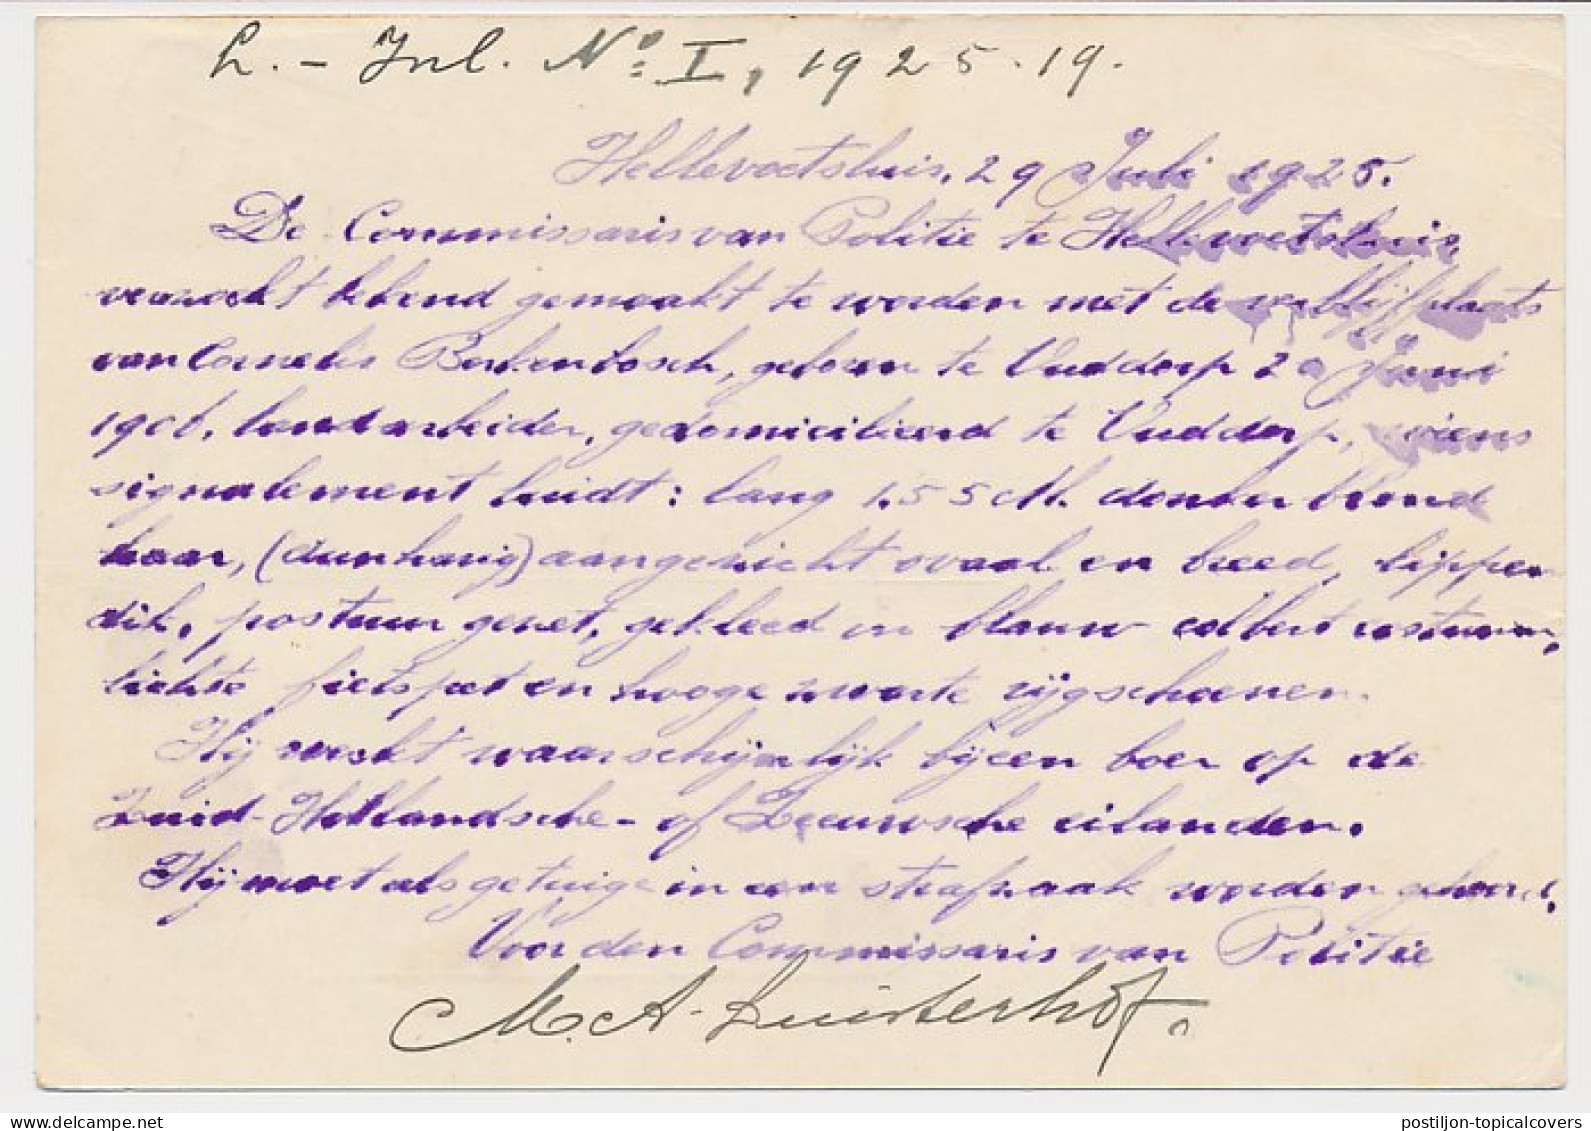 L. - Inl. No. I, 1925.19.
Hellevoetsluis, 29 Juli 1925.
De Commissaris van Politie te Hellevoetsluis,
verzoekt bekend gemaakt te worden met de verblijfplaats
van Cornelis Berkenbosch, geboren te Ouddorp 20 Juni
1906, landarbeider, gedomicilieerd te Ouddorp, wiens
signalement luidt: lang 1.55 cM. donker blond
haar, (dunharig) aangezicht ovaal en breed, lippen
dik, postuur gezet, gekleed in blauw colbert costuum,
lichte fietspet en hooge zwarte rijgschoenen.
Hij werkt waarschijnlijk bij een boer op de
Zuid-Hollandsche- of Zeeuwsche eilanden.
Hij moet als getuige in een strafzaak worden gehoord.
Voor den Commissaris van Politie
M. A. Luisterhof.
postiljon - topicalcovers
postiljon-topicalcovers